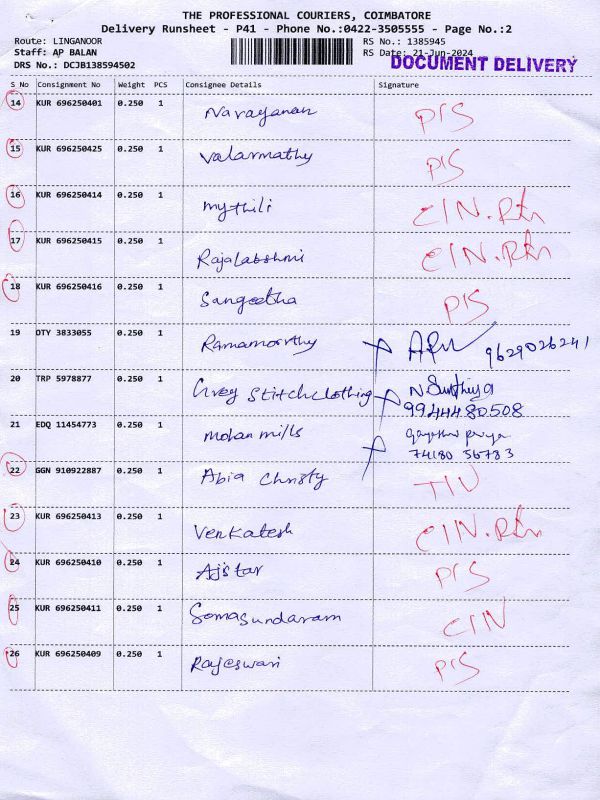 THE PROFESSIONAL COURIERS, COIMBATORE
Delivery Runsheet - P41 - Phone No.:0422-3505555 - Page No.:2
Route: LINGANOOR RS No.: 1385945
Staff: AP BALAN RS Date: 21-Jun-2024
DRS No.: DCJB138594502 DOCUMENT DELIVERY
S No Consignment No Weight PCS Consignee Details Signature
14 KUR 696250401 0.250 1 Narayanan P/S
15 KUR 696250425 0.250 1 Valarmathy P/S
16 KUR 696250414 0.250 1 mythili C/N.Rtn
17 KUR 696250415 0.250 1 Rajalabshmi C/N.Rtn
18 KUR 696250416 0.250 1 Sangeetha P/S
19 DTY 3833055 0.250 1 Ramamorthy 9629026241
20 TRP 5978877 0.250 1 Grey Stitch clothing N
9944480508
21 EDQ 11454773 0.250 1 mohan mills
74180 56783
22 GGN 910922887 0.250 1 Abia Christy
23 KUR 696250413 0.250 1 Venkatesh C/N.Rtn
24 KUR 696250410 0.250 1 Ajstar P/S
25 KUR 696250411 0.250 1 Somasundaram C/N
26 KUR 696250409 0.250 1 Rajeswari P/S